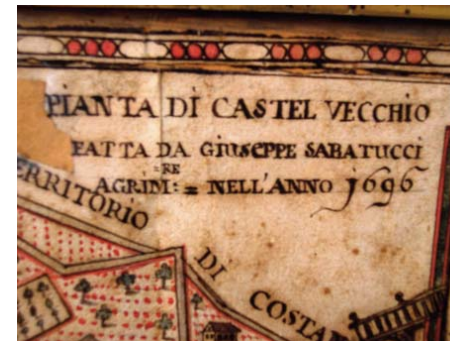 PIANTA DI CASTEL VECCHIO
FATTA DA GIUSEPPE SABATUCCI
AGRIM:RE = NELL'ANNO 1696
ERRITORIO DI COSTAN